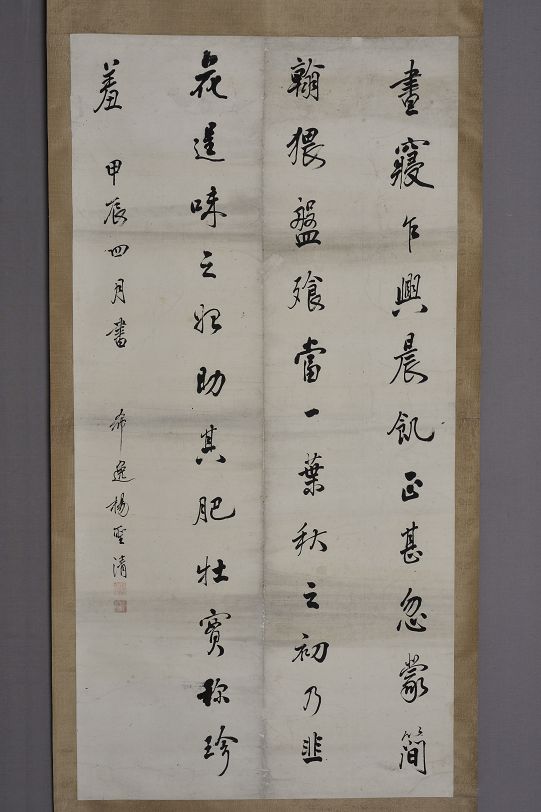 晝寢乍興晨飢正甚忽蒙簡
翰猥盤飱當一葉秋之初乃韭
花逞味之始助其肥壮實称珍
羞 甲辰四月書 希逸楊聖清